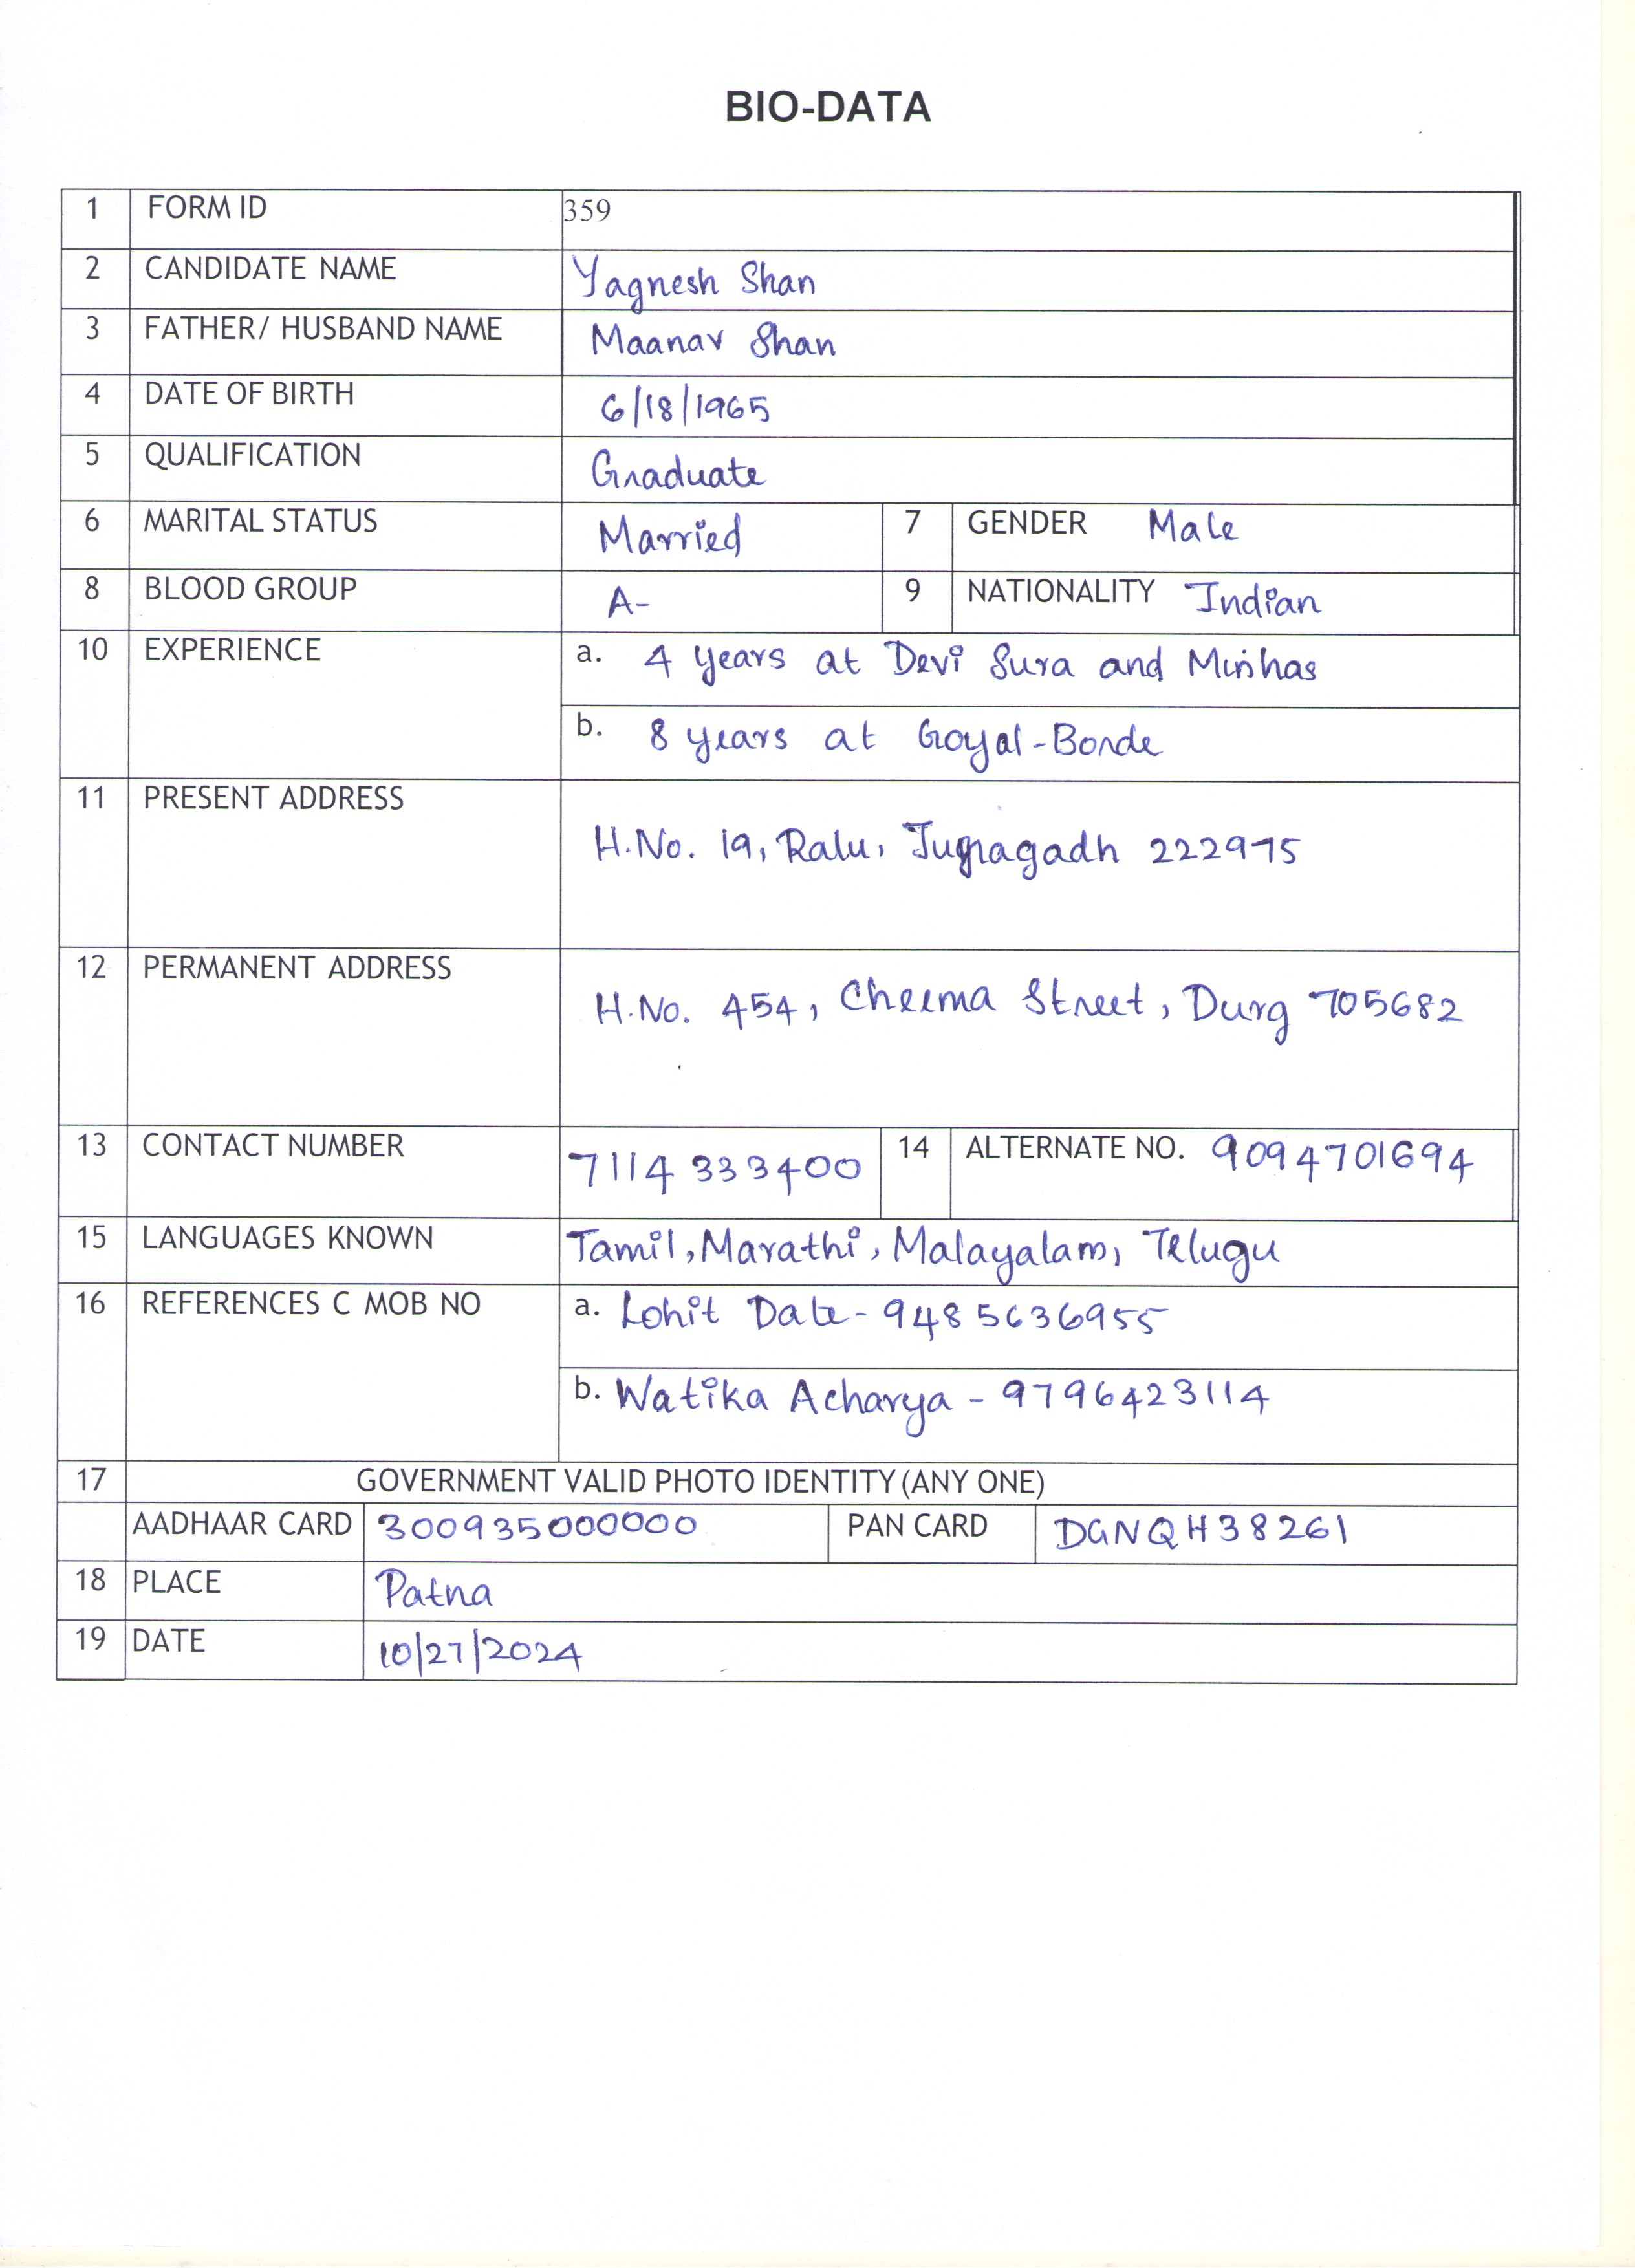 BIO-DATA
1 FORM ID 359
2 CANDIDATE NAME Yagnesh Shan
3 FATHER/ HUSBAND NAME Maanav Shan
4 DATE OF BIRTH 6/18/1965
5 QUALIFICATION Graduate
6 MARITAL STATUS Married 7 GENDER Male
8 BLOOD GROUP A- 9 NATIONALITY Indian
10 EXPERIENCE a. 4 years at Devi Sura and Minhas
b. 8 years at Goyal-Borde
11 PRESENT ADDRESS
H.No. 19, Ralu, 222975
12 PERMANENT ADDRESS
H.No. 454, Cheema Street, Durg 705682
13 CONTACT NUMBER 7114333400 14 ALTERNATE NO. 9094701694
15 LANGUAGES KNOWN Tamil, Marathi, Malayalam, Telugu
16 REFERENCES C MOB NO a. Lohit Date - 9485636955
b. Watika Acharya - 9796423114
17 GOVERNMENT VALID PHOTO IDENTITY (ANY ONE)
AADHAAR CARD 300935000000 PAN CARD DGNQH38261
18 PLACE Patna
19 DATE 10/27/2024